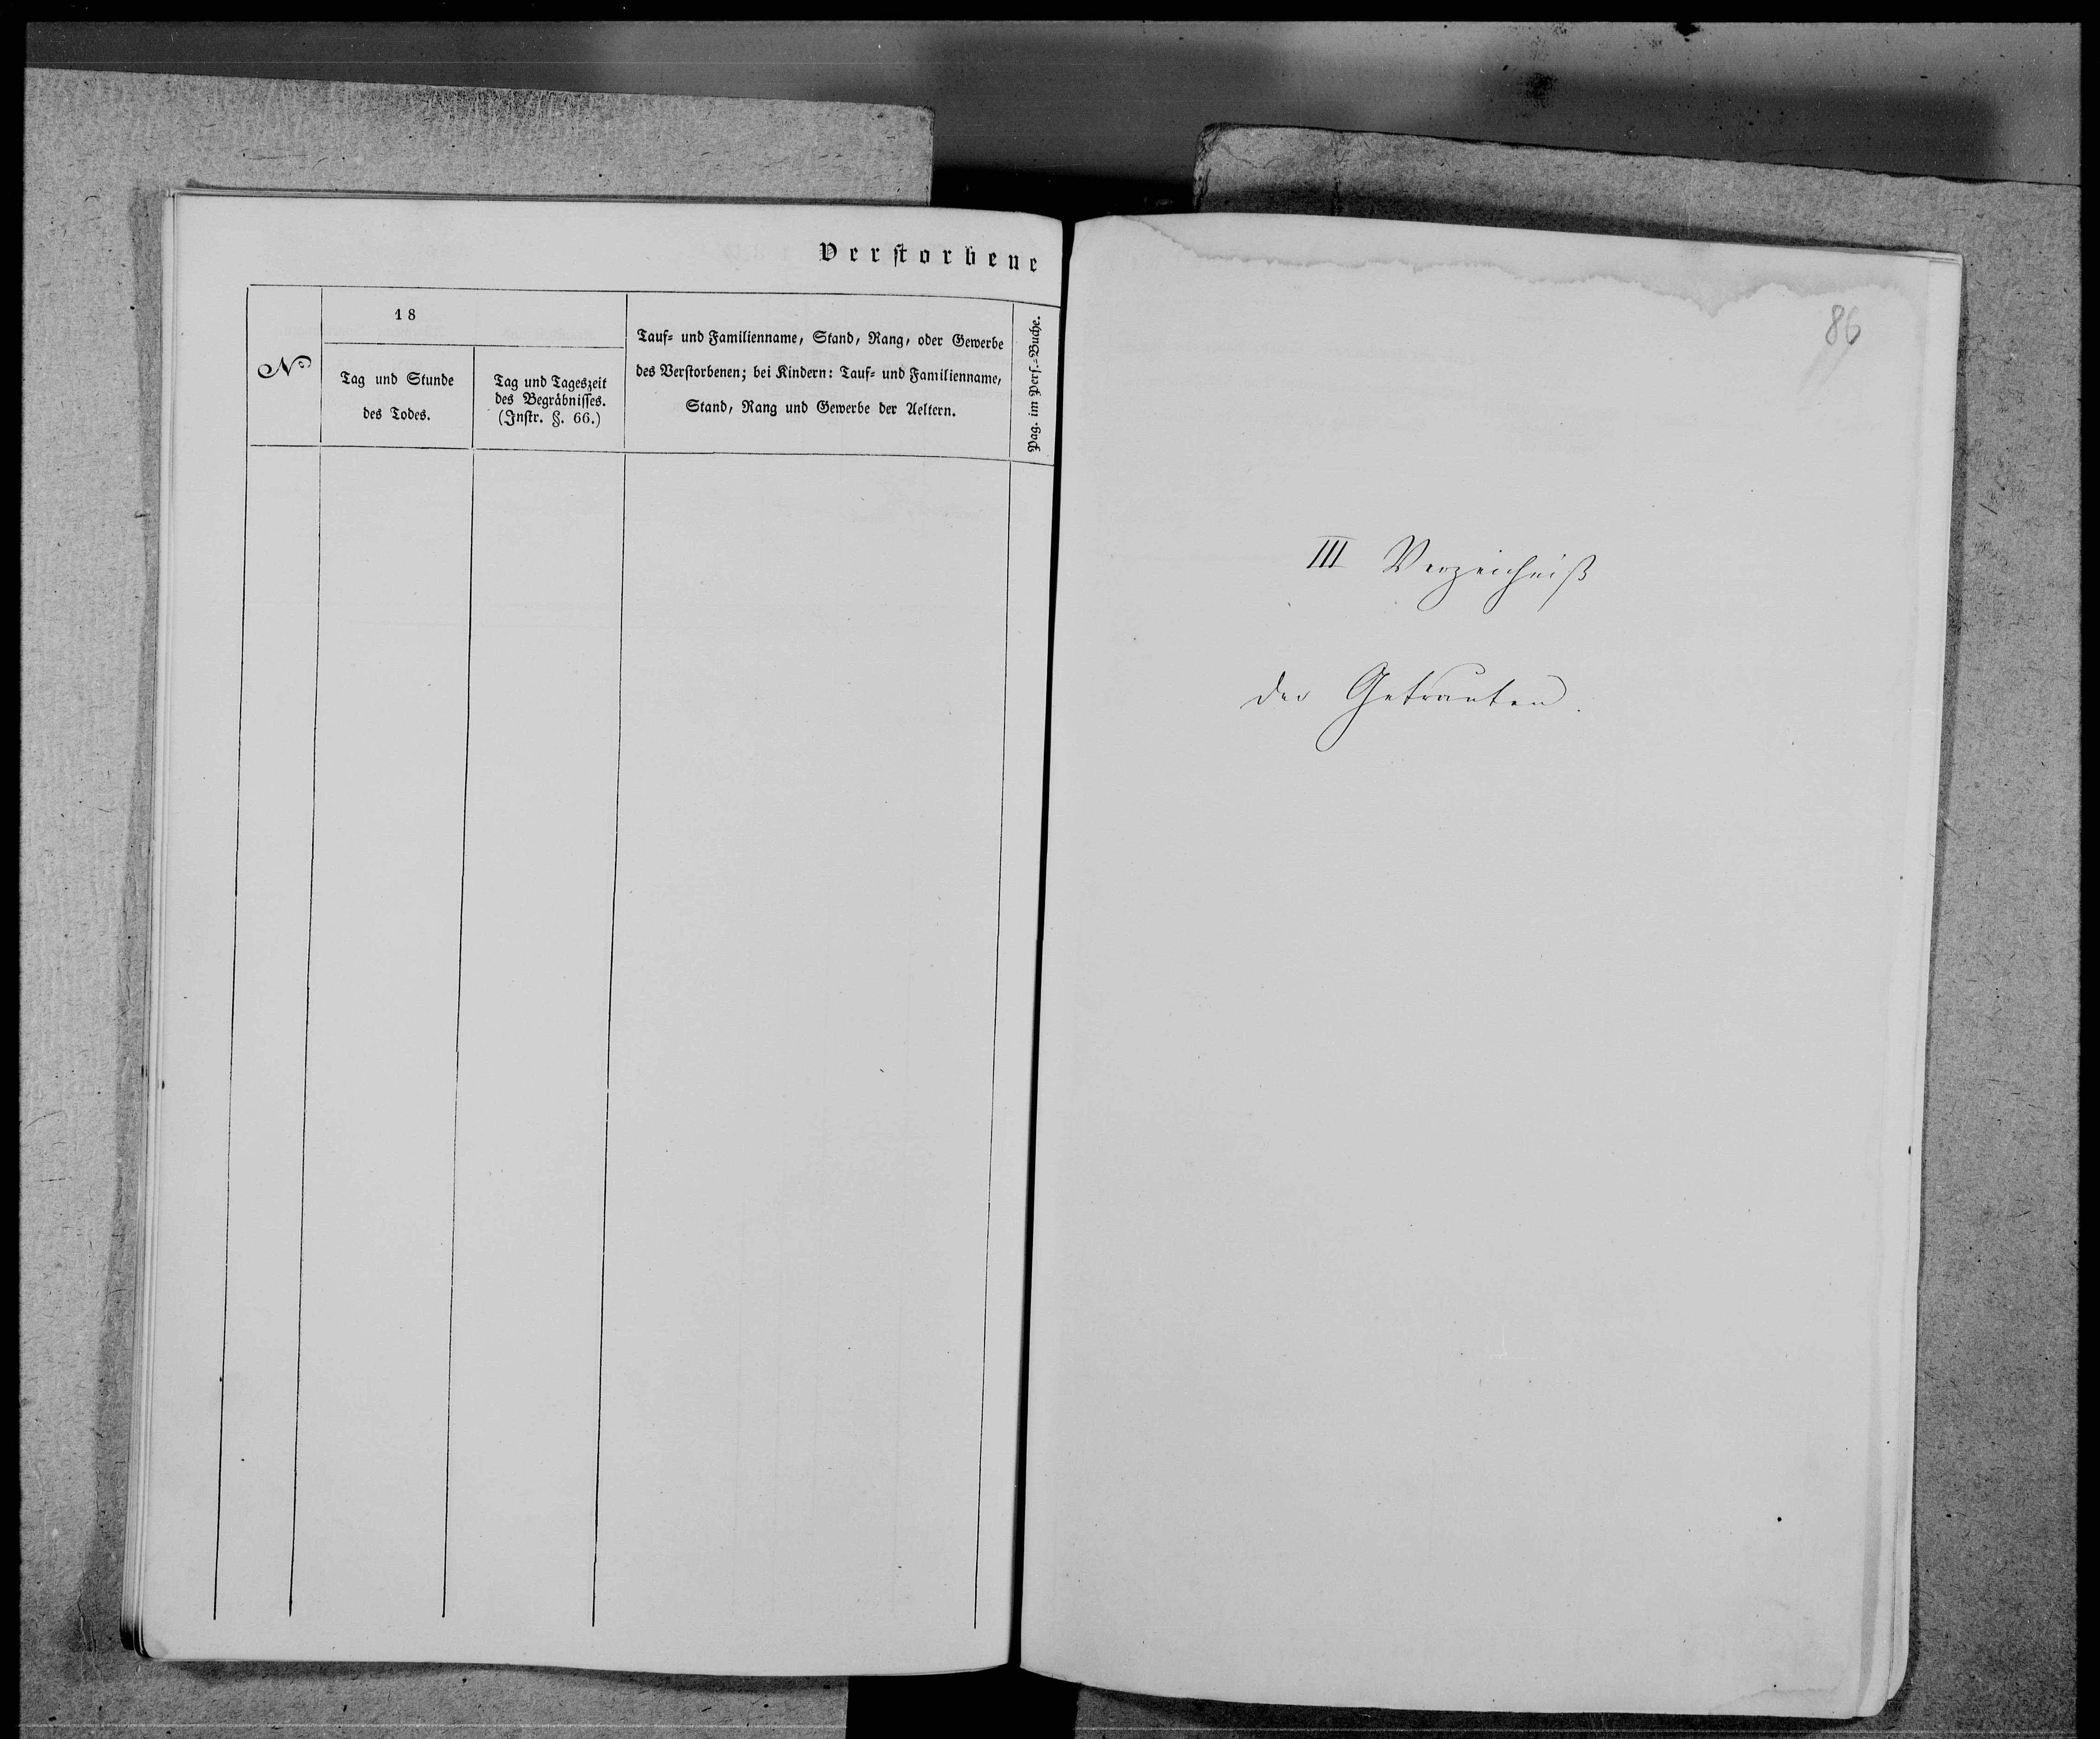 Verstorbene
№
18
Tag und Stunde
des Todes.
Tag und Tageszeit
des Begräbnisses.
(Instr. §. 66.)
Tauf= und Familienname, Stand, Rang, oder Gewerbe
des Verstorbenen; bei Kindern: Tauf= und Familienname,
Stand, Rang und Gewerbe der Aeltern.
Pag. im Pers.=Buche.
86
III Verzeichniß
der Getrauten.